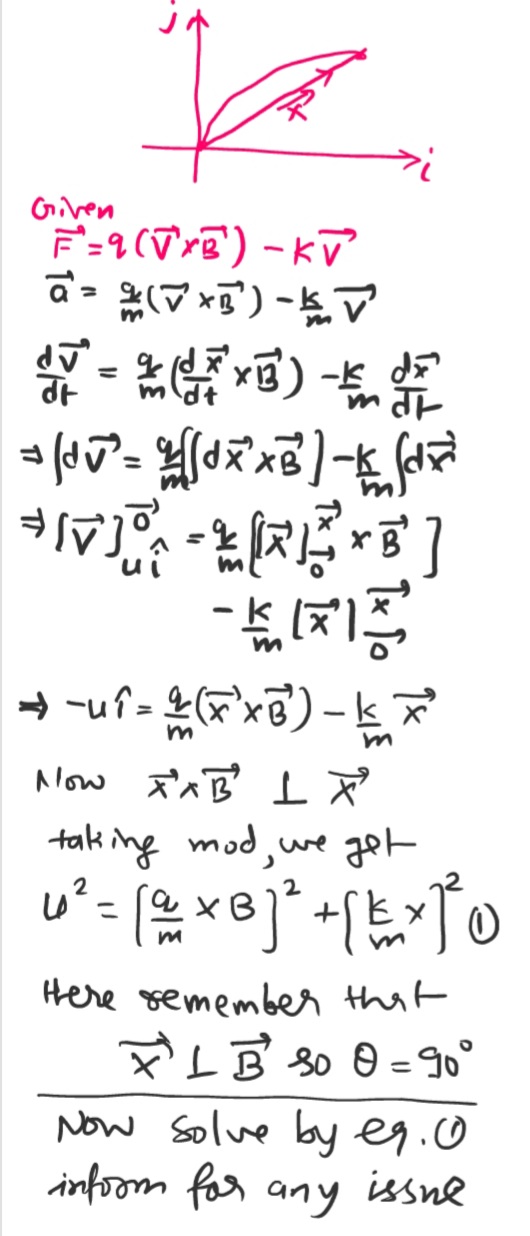 j
x⃗
i
Given
F⃗ = q(V⃗×B⃗) - kV⃗
a⃗ = q/m (V⃗×B⃗) - k/m V⃗
dV⃗/dt = q/m (dx⃗/dt × B⃗) - k/m dx⃗/dt
⇒ ∫dV⃗ = q/m [∫dx⃗×B⃗] - k/m ∫dx⃗
⇒ [V⃗]_{uî}^{0⃗} = q/m [[x⃗]_{0⃗}^{x⃗} × B⃗]
- k/m [x⃗]_{0⃗}^{x⃗}
⇒ -uî = q/m (x⃗×B⃗) - k/m x⃗
Now x⃗×B⃗ ⊥ x⃗
taking mod, we get
u² = [q/m xB]² + [k/m x]² ①
Here remember that
x⃗ ⊥ B⃗ so θ = 90°
Now solve by eq. ①
inform for any issue